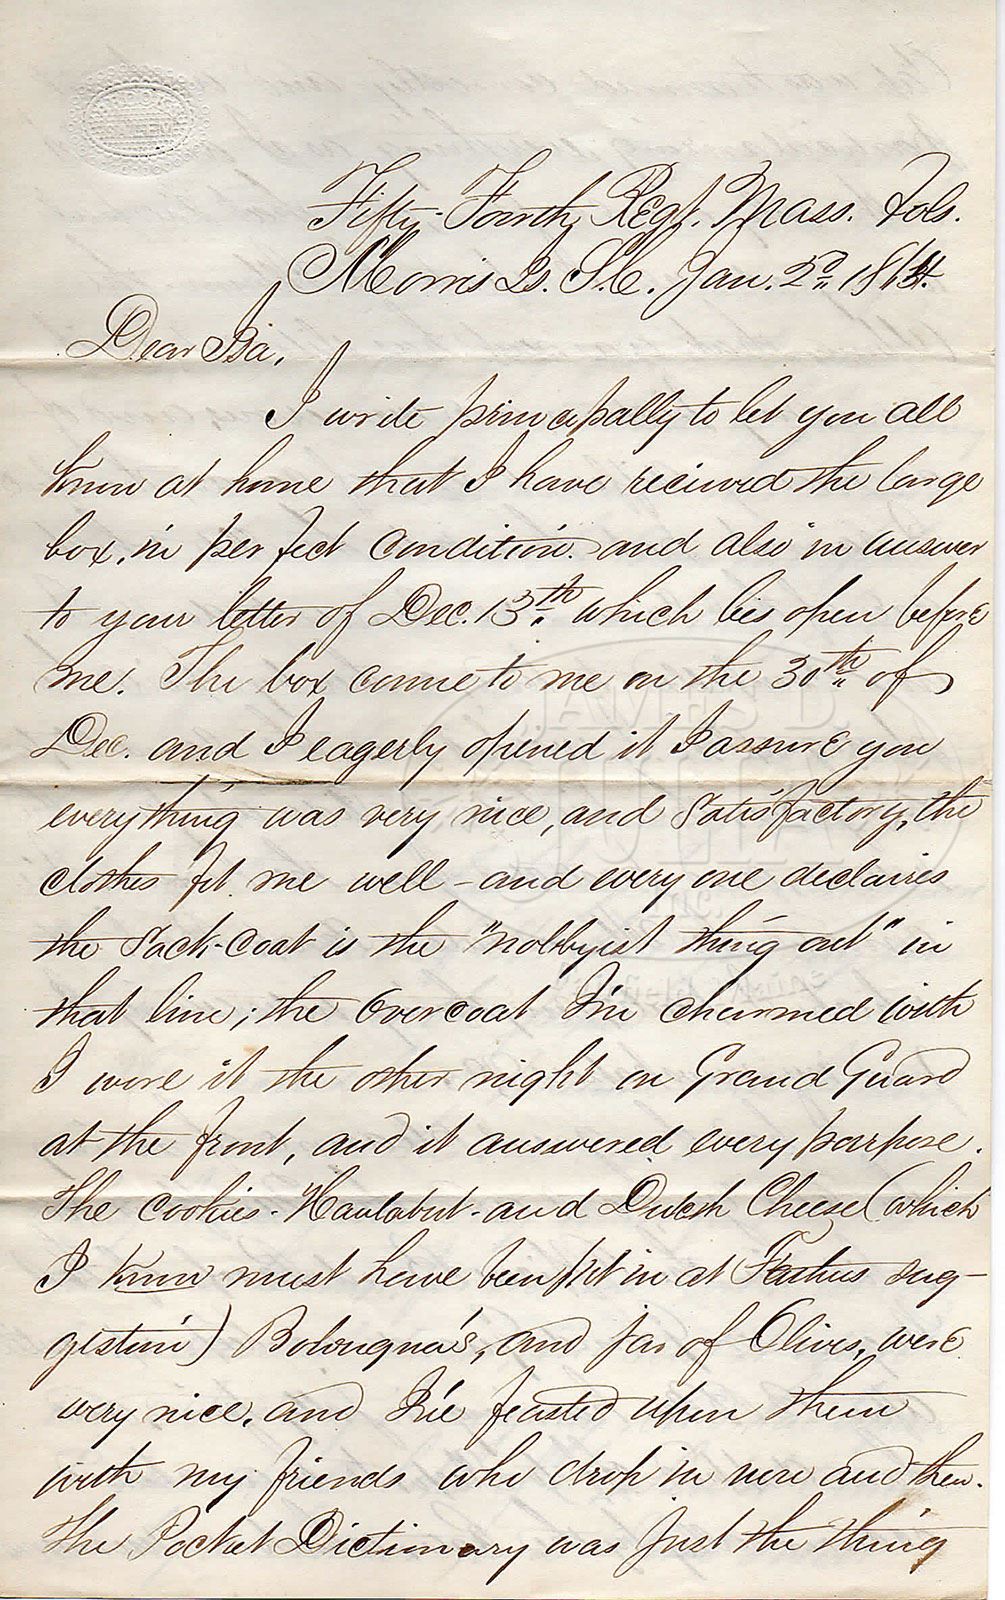 Fifty-Fourth Regt. Mass. Vols.
Morris Is. S.C. Jan. 2d, 1864.
Dear Isa,
I write principally to let you all
know at home that I have recieved the large
box, in perfect condition. and also in answer
to your letter of Dec. 13th which lies open before
me. The box came to me on the 30th of
Dec. and I eagerly opened it I assure you
everything was very nice, and satisfactory, the
clothes fit me well - and every one declaires
the Sack-Coat is the "nobbyist thing out" in
that line; the Overcoat I'm charmed with
I wore it the other night on Grand Guard
at the front, and it answered every purpose.
The cookies - Haulabut - and Dutch Cheese (which
I know must have been put in at Fathers sug-
gestion) Bolougna's, and jar of Olives, were
very nice, and I've feasted upon them
with my friends who drop in now and then.
The Pocket Dictionary was just the thing
JAMES D.
JULIA
INC.
Fairfield, Maine